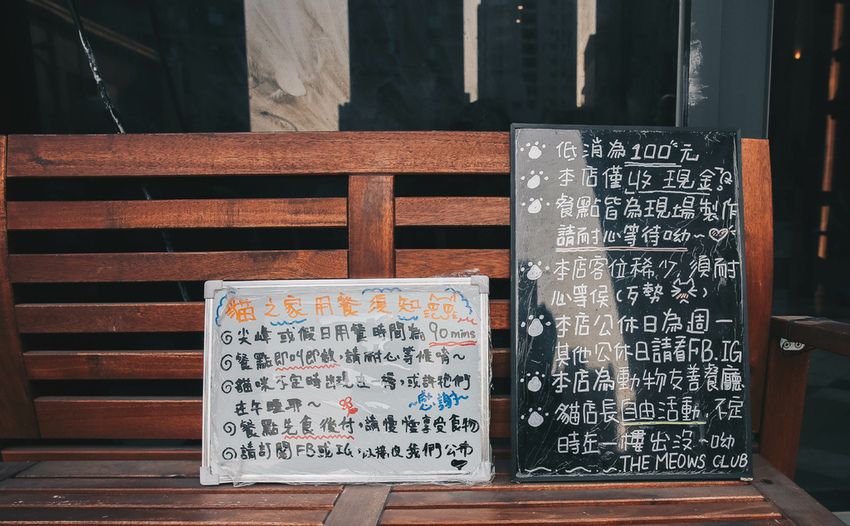 貓之家用餐須知
尖峰或假日用餐時間為90mins
餐點即叫即做,請耐心等候唷~
貓咪不定時出現在一樓,或許牠們
在午睡耶~ 感謝~
餐點先食後付,請慢慢享受食物
請訂閱FB或IG,以接收我們公布
低消為100元
本店僅收現金
餐點皆為現場製作
請耐心等待呦~
本店客位稀少,須耐
心等候(歹勢)
本店公休日為週一
其他公休日請看FB.IG
本店為動物友善餐廳
貓店長自由活動,不定
時在一樓出沒~呦
THE MEOWS CLUB